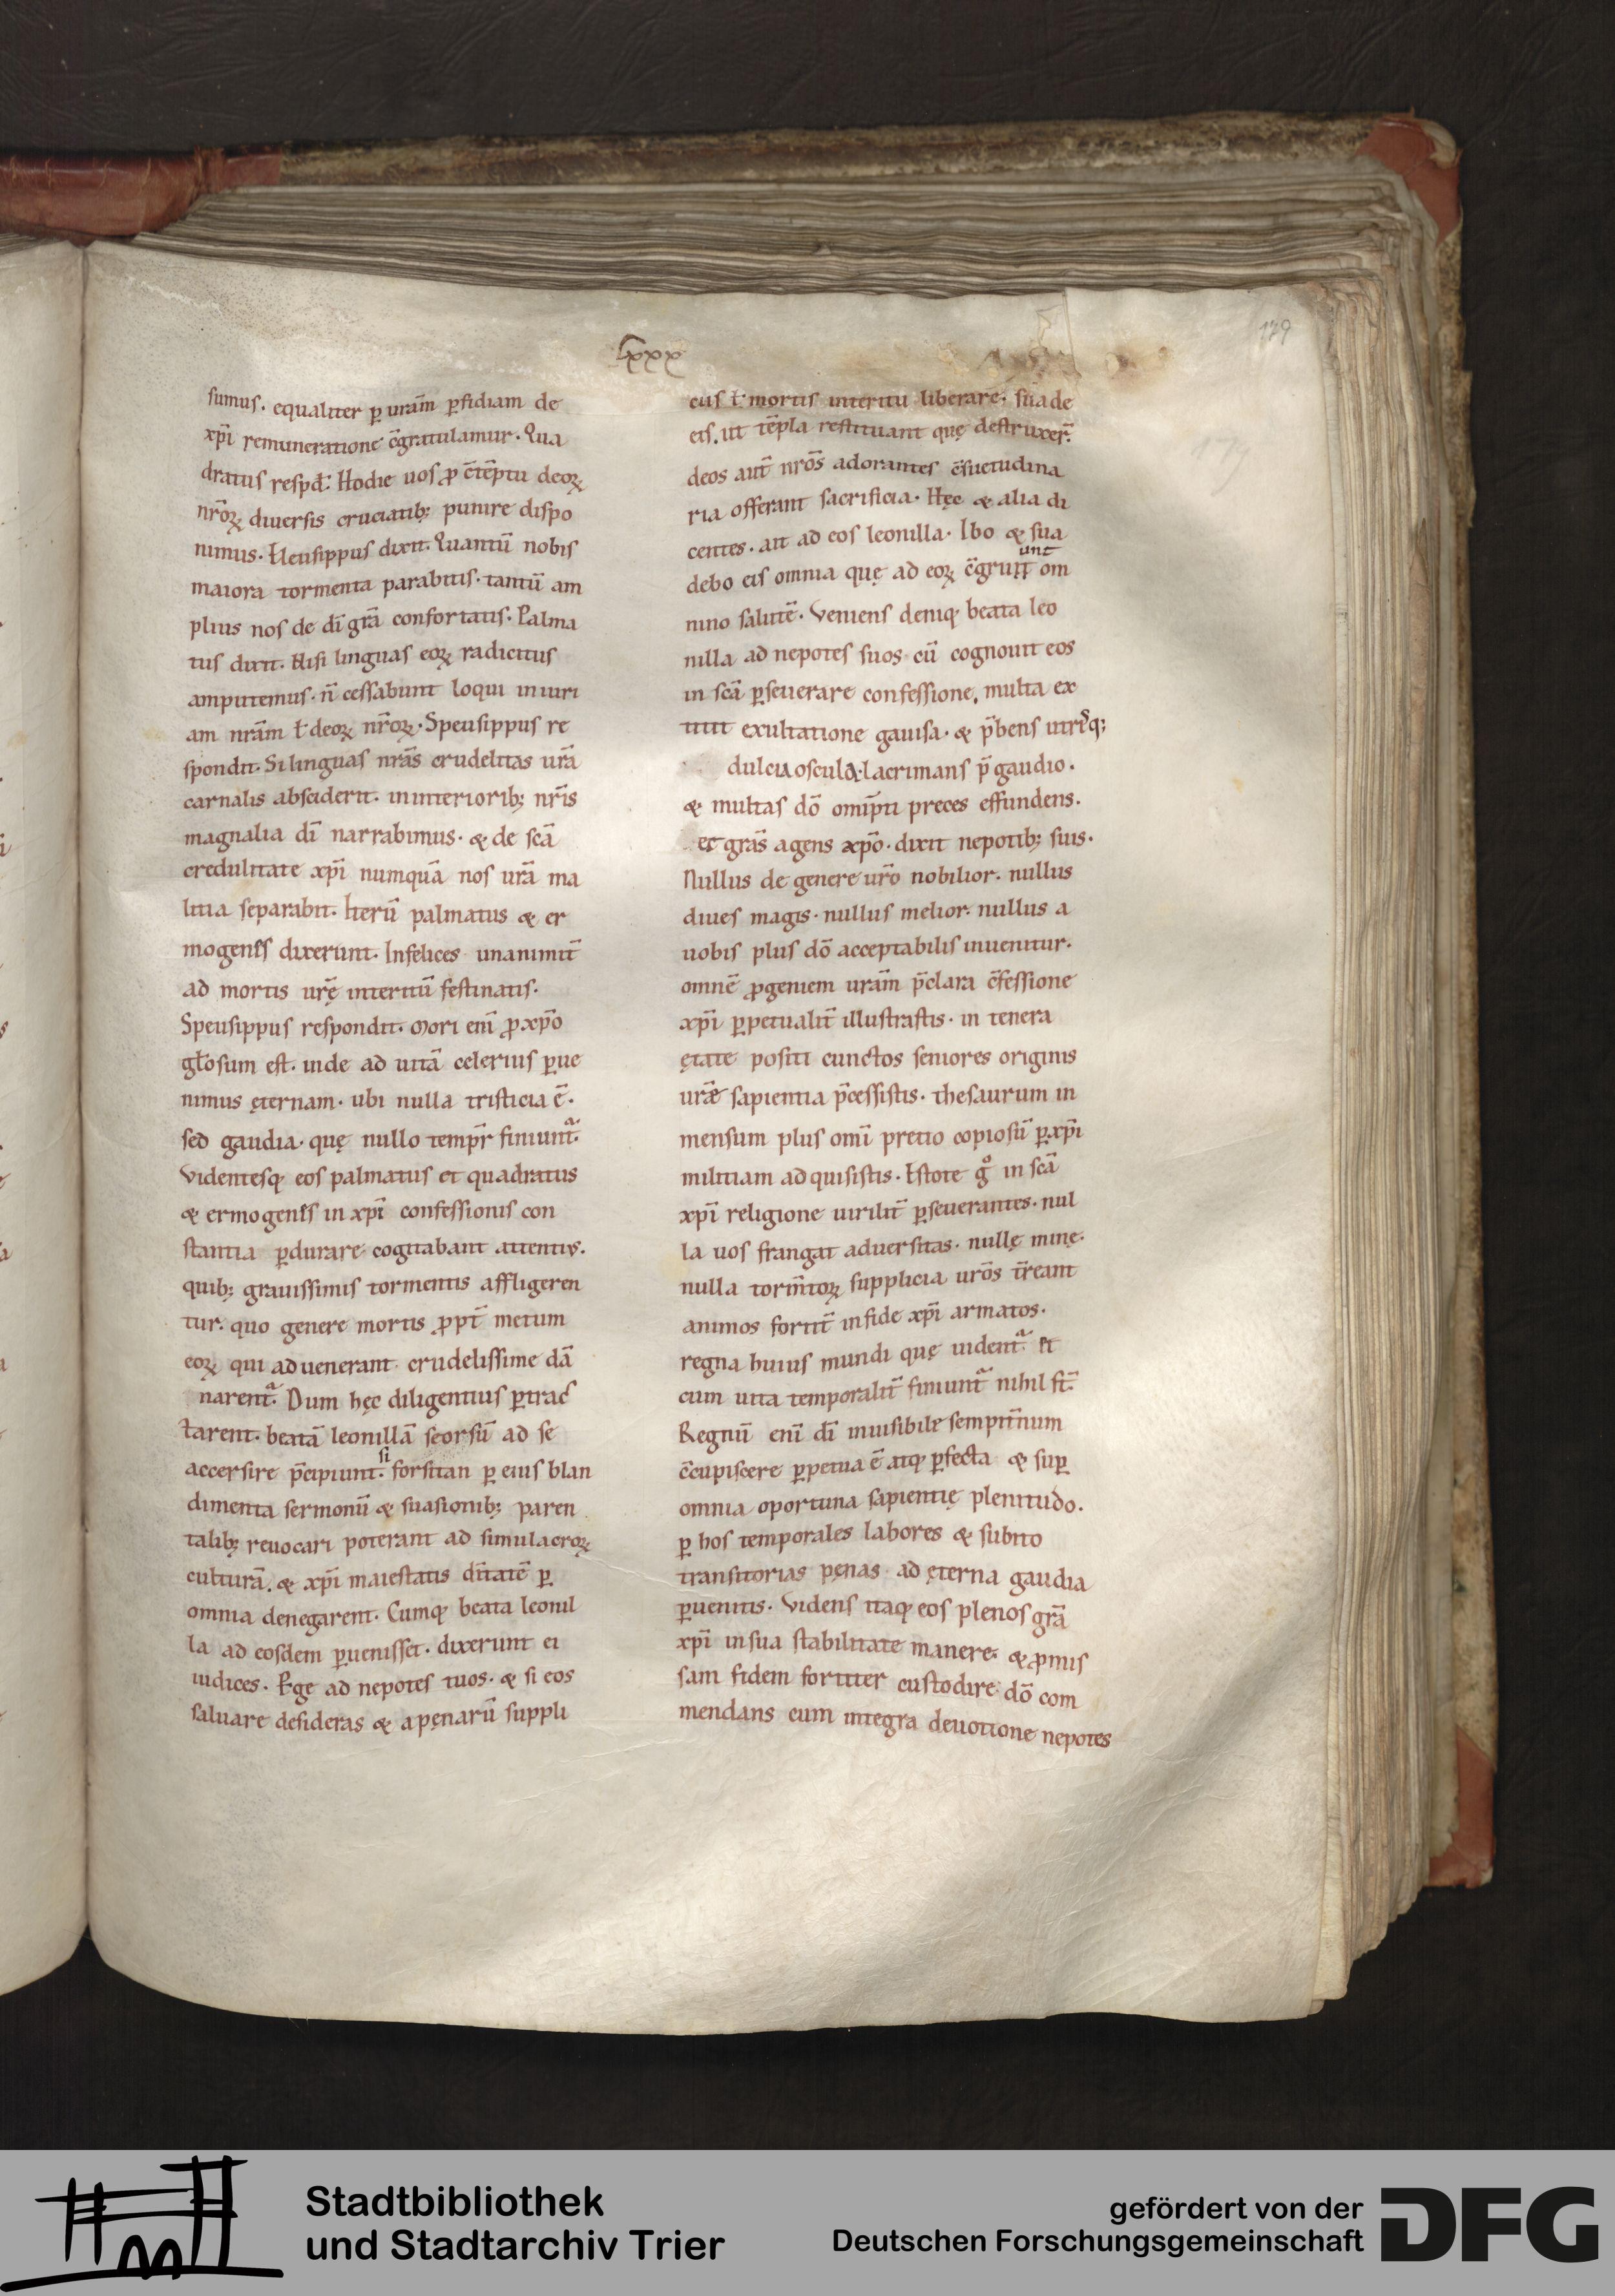 Lxxx
179
sumus. equaliter ꝑ urãm ꝑfidiam de
xp̃i remuneratione c̃gratulamur. Qua
dratus respd̃. Hodie uos ꝓ c̃tẽptu deoꝝ
nr̃oꝝ diuersis cruciatib; punire dispo
nimus. Eleusippus dixit. Quantũ nobis
maiora tormenta parabitis. tantũ am
plius nos de dĩ grã confortatis. Palma
tus dixit. Nisi linguas eoꝝ radicitus
amputemus. ñ cessabunt loqui iniuri
am nrãm ł deoꝝ nr̃oꝝ. Speusippus re
spondit. Si linguas nrãs crudelitas urã
carnalis absciderit. in interiorib; nr̃is
magnalia dĩ narrabimus. & de scã
credulitate xp̃i numquã nos urã ma
litia separabit. Iterũ palmatus & er
mogenis dixerunt. Infelices unanimit̃
ad mortis urę̃ interitũ festinatis.
Speusippus respondit. Mori enĩ ꝓ xp̃o
głosum est. inde ad uitã celerius ꝑue
nimus ęternam. ubi nulla tristicia ẽ.
sed gaudia. quę nullo temp̃r finiunt̃.
Videntesq; eos palmatus et quadratus
& ermogenis in xp̃i confessionis con
stantia ꝑdurare cogitabant attentiꝰ.
quib; grauissimis tormentis affligeren
tur. quo genere mortis ꝓpt̃ metum
eoꝝ qui aduenerant crudelissime dã
narent̃. Dum hęc diligentius ꝑtrac
tarent. beatã leonillã seorsũ ad se
accersire p̃cipiunt. si forsitan ꝑ eius blan
dimenta sermonũ & suasionib; paren
talib; reuocari poterant ad simulacroꝝ
culturã. & xp̃i maiestatis dñitatẽ ꝑ
omnia denegarent. Cumq; beata leonil
la ad eosdem ꝑuenisset. dixerunt ei
iudices. Ege ad nepotes tuos. & si eos
saluare desideras & a pęnarũ suppli
ciis ł mortis interitu liberare. suade
eis. ut tẽpla restituant quę destruxer̃.
deos aut̃ nrõs adorantes c̃suetudina
ria offerant sacrificia. Hęc & alia di
centes. ait ad eos leonilla. Ibo & sua
unt
debo eis omnia quę ad eoꝝ c̃gruꝶt om
nino salutẽ. Veniens deniq; beata leo
nilla ad nepotes suos cũ cognouit eos
in scã ꝑseuerare confessione, multa ex
titit exultatione gauisa. & p̃bens utrisq;
dulcia oscula. lacrimans p̃ gaudio.
& multas dõ omĩpti preces effundens.
et grãs agens xp̃o. dixit nepotib; suis.
Nullus de genere urõ nobilior. nullus
diues magis. nullus melior. nullus a
uobis plus dõ acceptabilis inuenitur.
omnẽ ꝓgeniem urãm p̃clara c̃fessione
xp̃i ꝑpetualit̃ illustrastis. in tenera
ętate positi cunctos seniores originis
uræ̃ sapientia p̃cessistis. thesaurum in
mensum plus omĩ pretio copiosũ ꝑ xp̃i
militiam adquisistis. Estote gͦ in scã
xp̃i religione uirilit̃ ꝑseuerantes. nul
la uos frangat aduersitas. nullę minę.
nulla torm̃toꝝ supplicia urõs t̃reant
animos fortit̃ in fide xp̃i armatos.
regna huius mundi quę uident̃ et
cum uita temporalit̃ finiunt̃ nihil st̃.
Regnũ enĩ dĩ inuisibile sempit̃num
c̃cupiscere ꝑpetua ẽ atq; ꝑfecta & suꝑ
omnia oportuna sapientię plenitudo.
ꝑ hos temporales labores & subito
transitorias pęnas ad ęterna gaudia
ꝑuenitis. Videns itaq; eos plenos grã
xp̃i in sua stabilitate manere. & ꝓmis
sam fidem fortiter custodire. dõ com
mendans cum integra deuotione nepotes
Stadtbibliothek
und Stadtarchiv Trier
gefördert von der
Deutschen Forschungsgemeinschaft
DFG